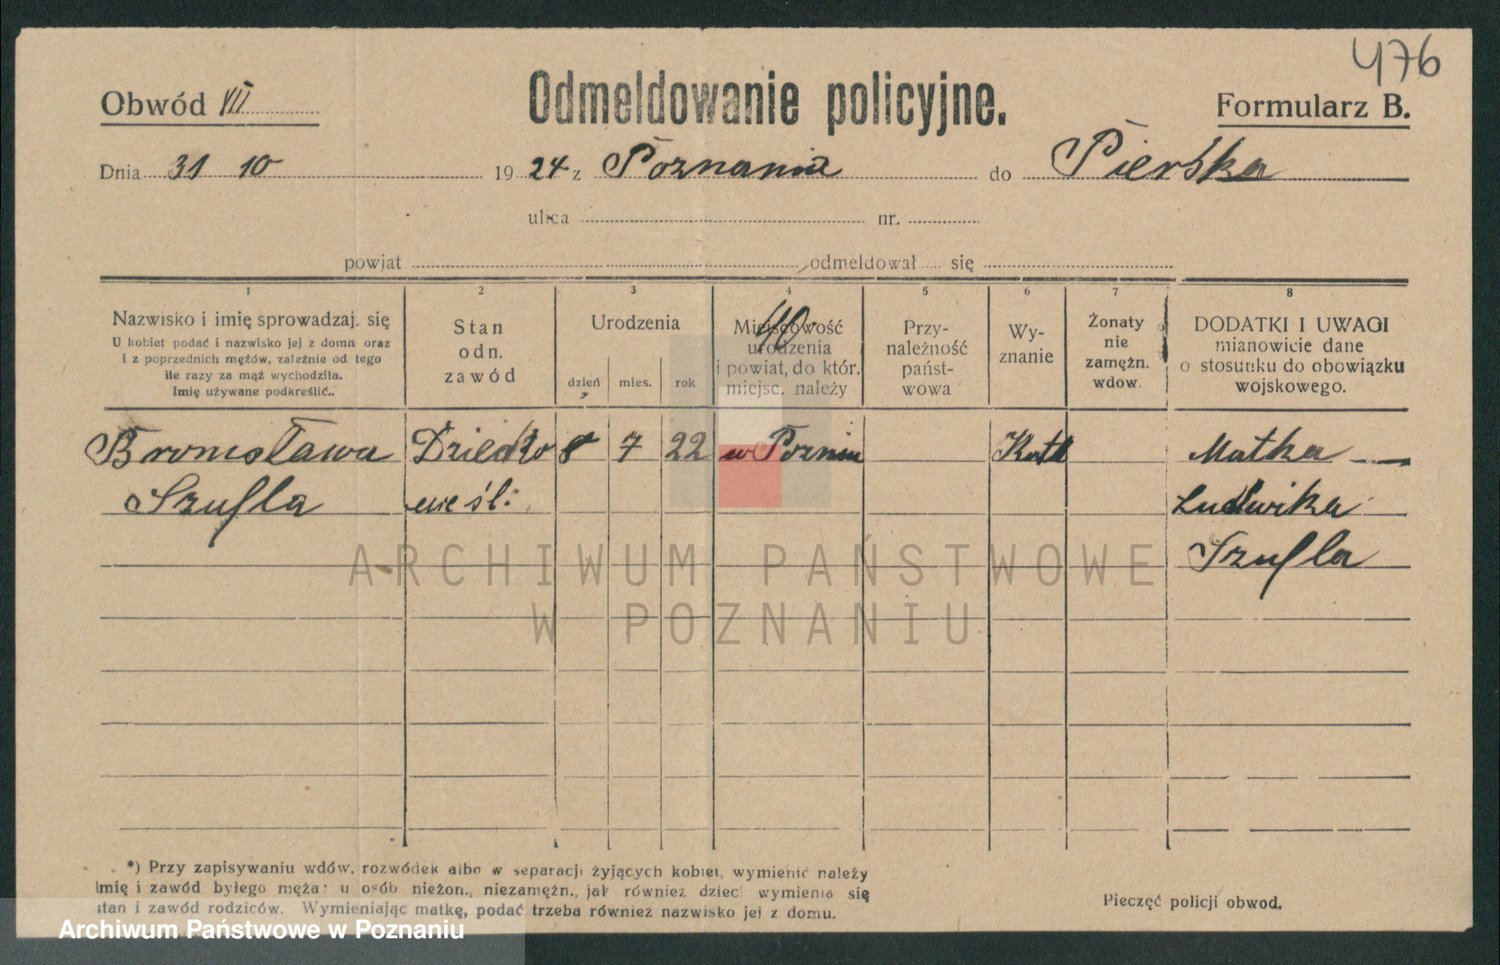 476
Obwód VII
Odmeldowanie policyjne.
Formularz B.
Dnia 31 10 1924 z Poznania do Pierska
ulica nr.
powiat odmeldował się
1 2 3 4 5 6 7 8
Nazwisko i imię sprowadzaj. się
U kobiet podać i nazwisko jej z domu oraz
i z poprzednich mężów, zależnie od tego
ile razy za mąż wychodziła.
Imię używane podkreślić..
Stan
odn.
zawód
Urodzenia
dzień mies. rok
40
Miejscowość
urodzenia
i powiat, do któr.
miejsc. należy
Przy-
należność
państ-
wowa
Wy-
znanie
Żonaty
nie
zamężn.
wdow.
DODATKI I UWAGI
mianowicie dane
o stosunku do obowiązku
wojskowego.
Bronisława Dziecko 8 7 22 w Poznniu Katl Matka
Szufla nieśl: Ludwika
Szufla
ARCHIWUM PAŃSTWOWE
W POZNANIU
*) Przy zapisywaniu wdów, rozwódek albo w separacji żyjących kobiet, wymienić należy
imię i zawód byłego męża: u osób nieżon., niezamężn., jak również dzieci wymienia się
stan i zawód rodziców. Wymieniając matkę, podać trzeba również nazwisko jej z domu.
Pieczęć policji obwod.
Archiwum Państwowe w Poznaniu